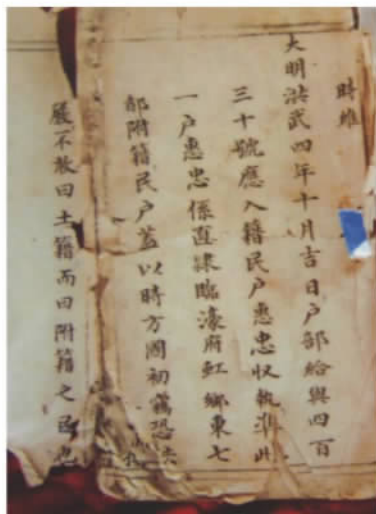 時維
大明洪武四年十月吉日户部給與四百
三十號應入籍民户惠忠収執準此
一户惠忠係直隸臨濠府虹鄉東七
都附籍民户蓋以時方國初竊恐
嚴不敢曰土籍而曰附籍之民也